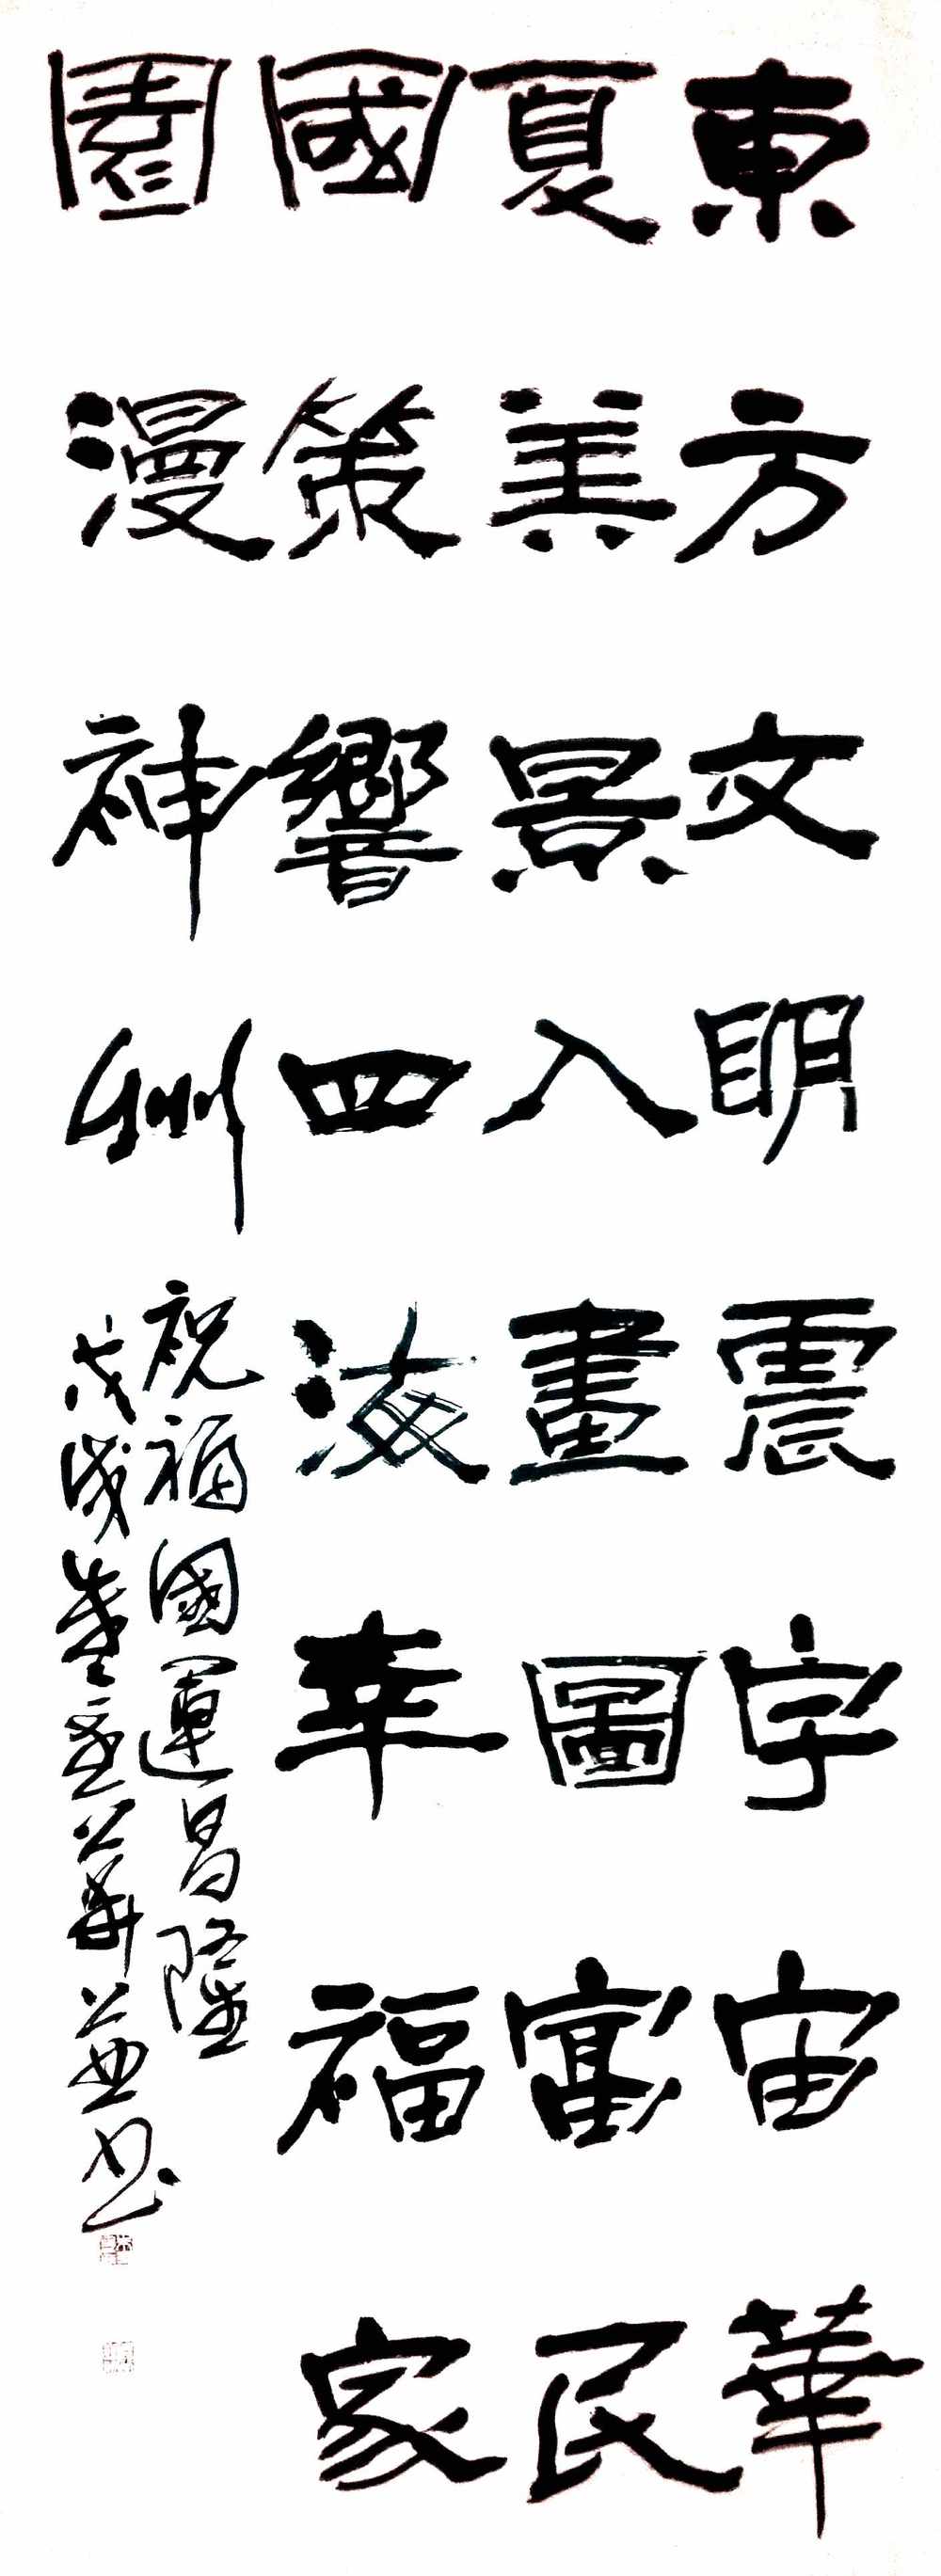 東方文明震宇宙華
夏美景入畫圖富民
國策響四海幸福家
園漫神州
祝福國運昌隆
戊戌書